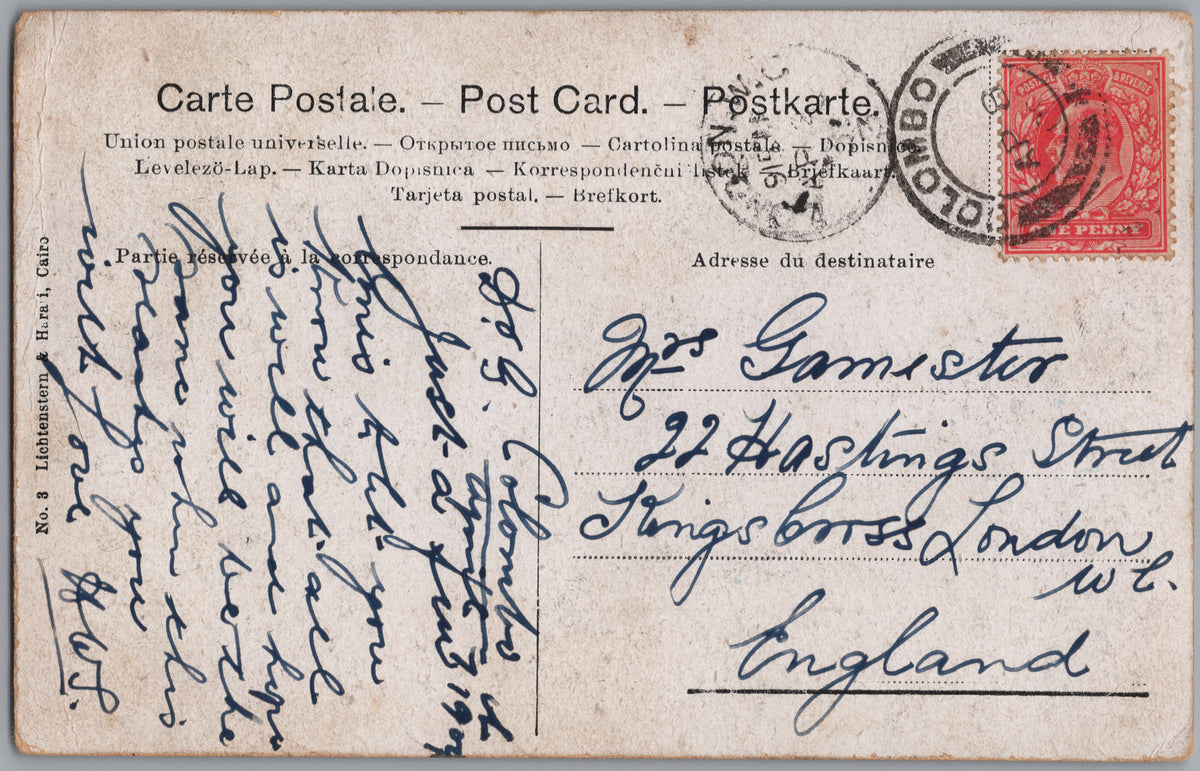 Carte Postale. — Post Card. — Postkarte.
Union postale universelle. — Открытое письмо — Cartolina postale. — Dopisnice
Levelezö-Lap. — Karta Dopisnica — Korrespondenční listek — Briefkaart.
Tarjeta postal. — Brefkort.
Partie réservée à la correspondance.
Adresse du destinataire
No. 3 Lichtenstern & Harari, Cairo
COLOMBO
POSTAGE & REVENUE
ONE PENNY
Colombo
Just a few
lines to let you
know that all
is well and hope
you will be the
same when this
reaches you
with love
Mrs Gamester
22 Hastings Street
Kings Cross London
W C.
England